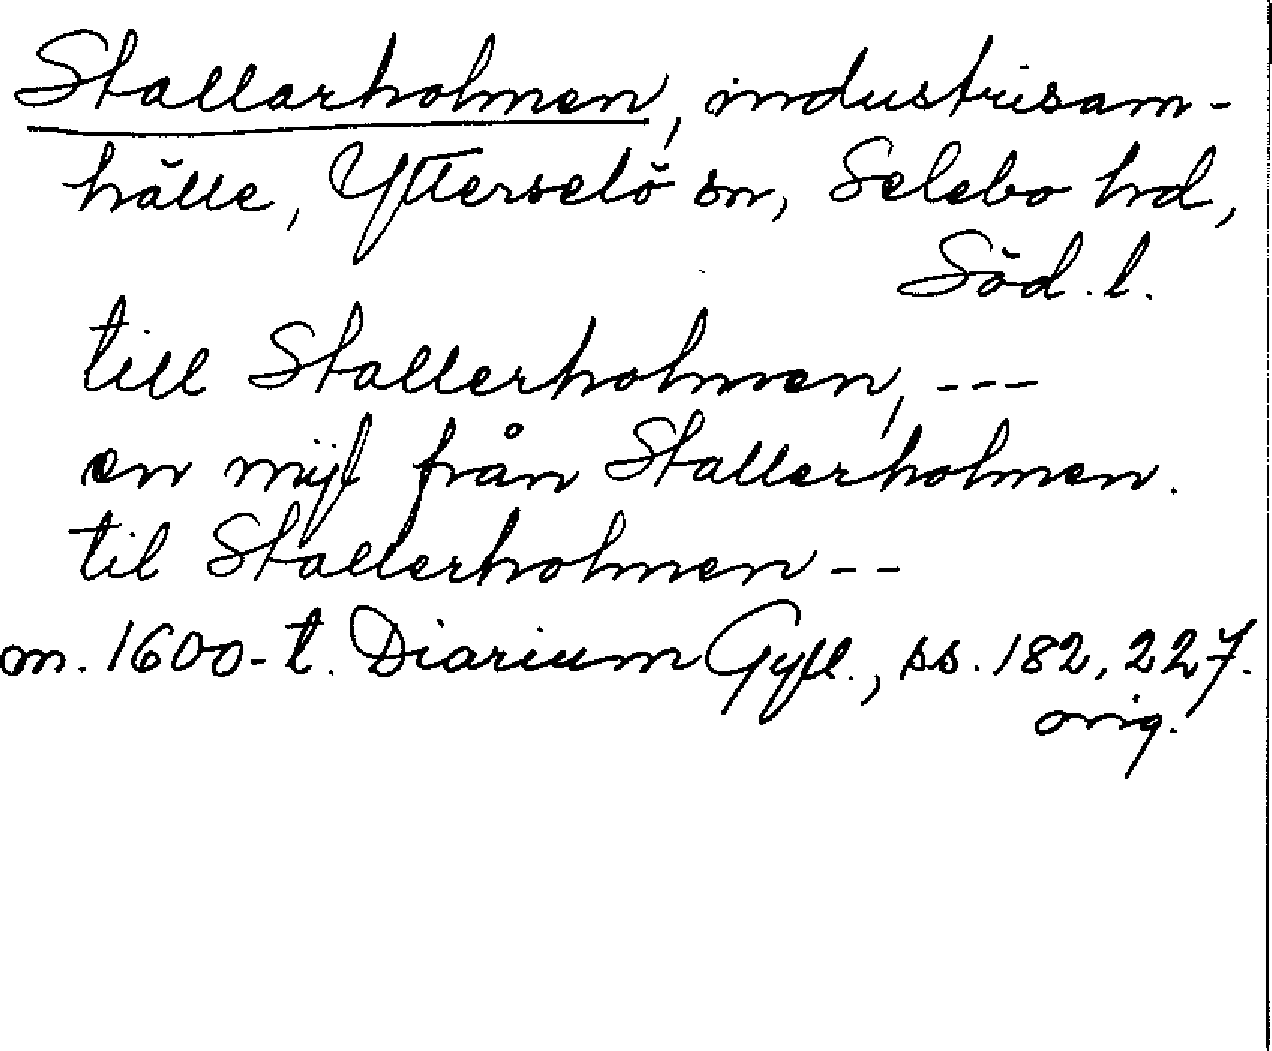 Stallarholmen, industrisam-
hälle, Ytterselö sn, Selebo hd,
Söd. l.
till Stallerholmen, ---
en mijl från Stallerholmen.
til Stallerholmen --
m. 1600-t. Diarium Gyll., ss. 182, 227.
orig.